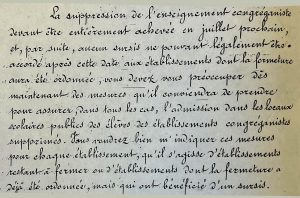 La suppression de l'enseignement congréganiste
devant être entièrement achevée en juillet prochain,
et, par suite, aucun sursis ne pouvant légalement être
accordé après cette date aux établissements dont la fermeture
aura été ordonnée, vous devez vous préoccuper dès
maintenant des mesures qu'il conviendra de prendre
pour assurer, dans tous les cas, l'admission dans les locaux
scolaires publics des élèves des établissements congréganistes
supprimés. Vous voudrez bien m'indiquer ces mesures
pour chaque établissement, qu'il s'agisse d'établissements
restant à fermer ou d'établissements dont la fermeture a
déjà été ordonnée, mais qui ont bénéficié d'un sursis.